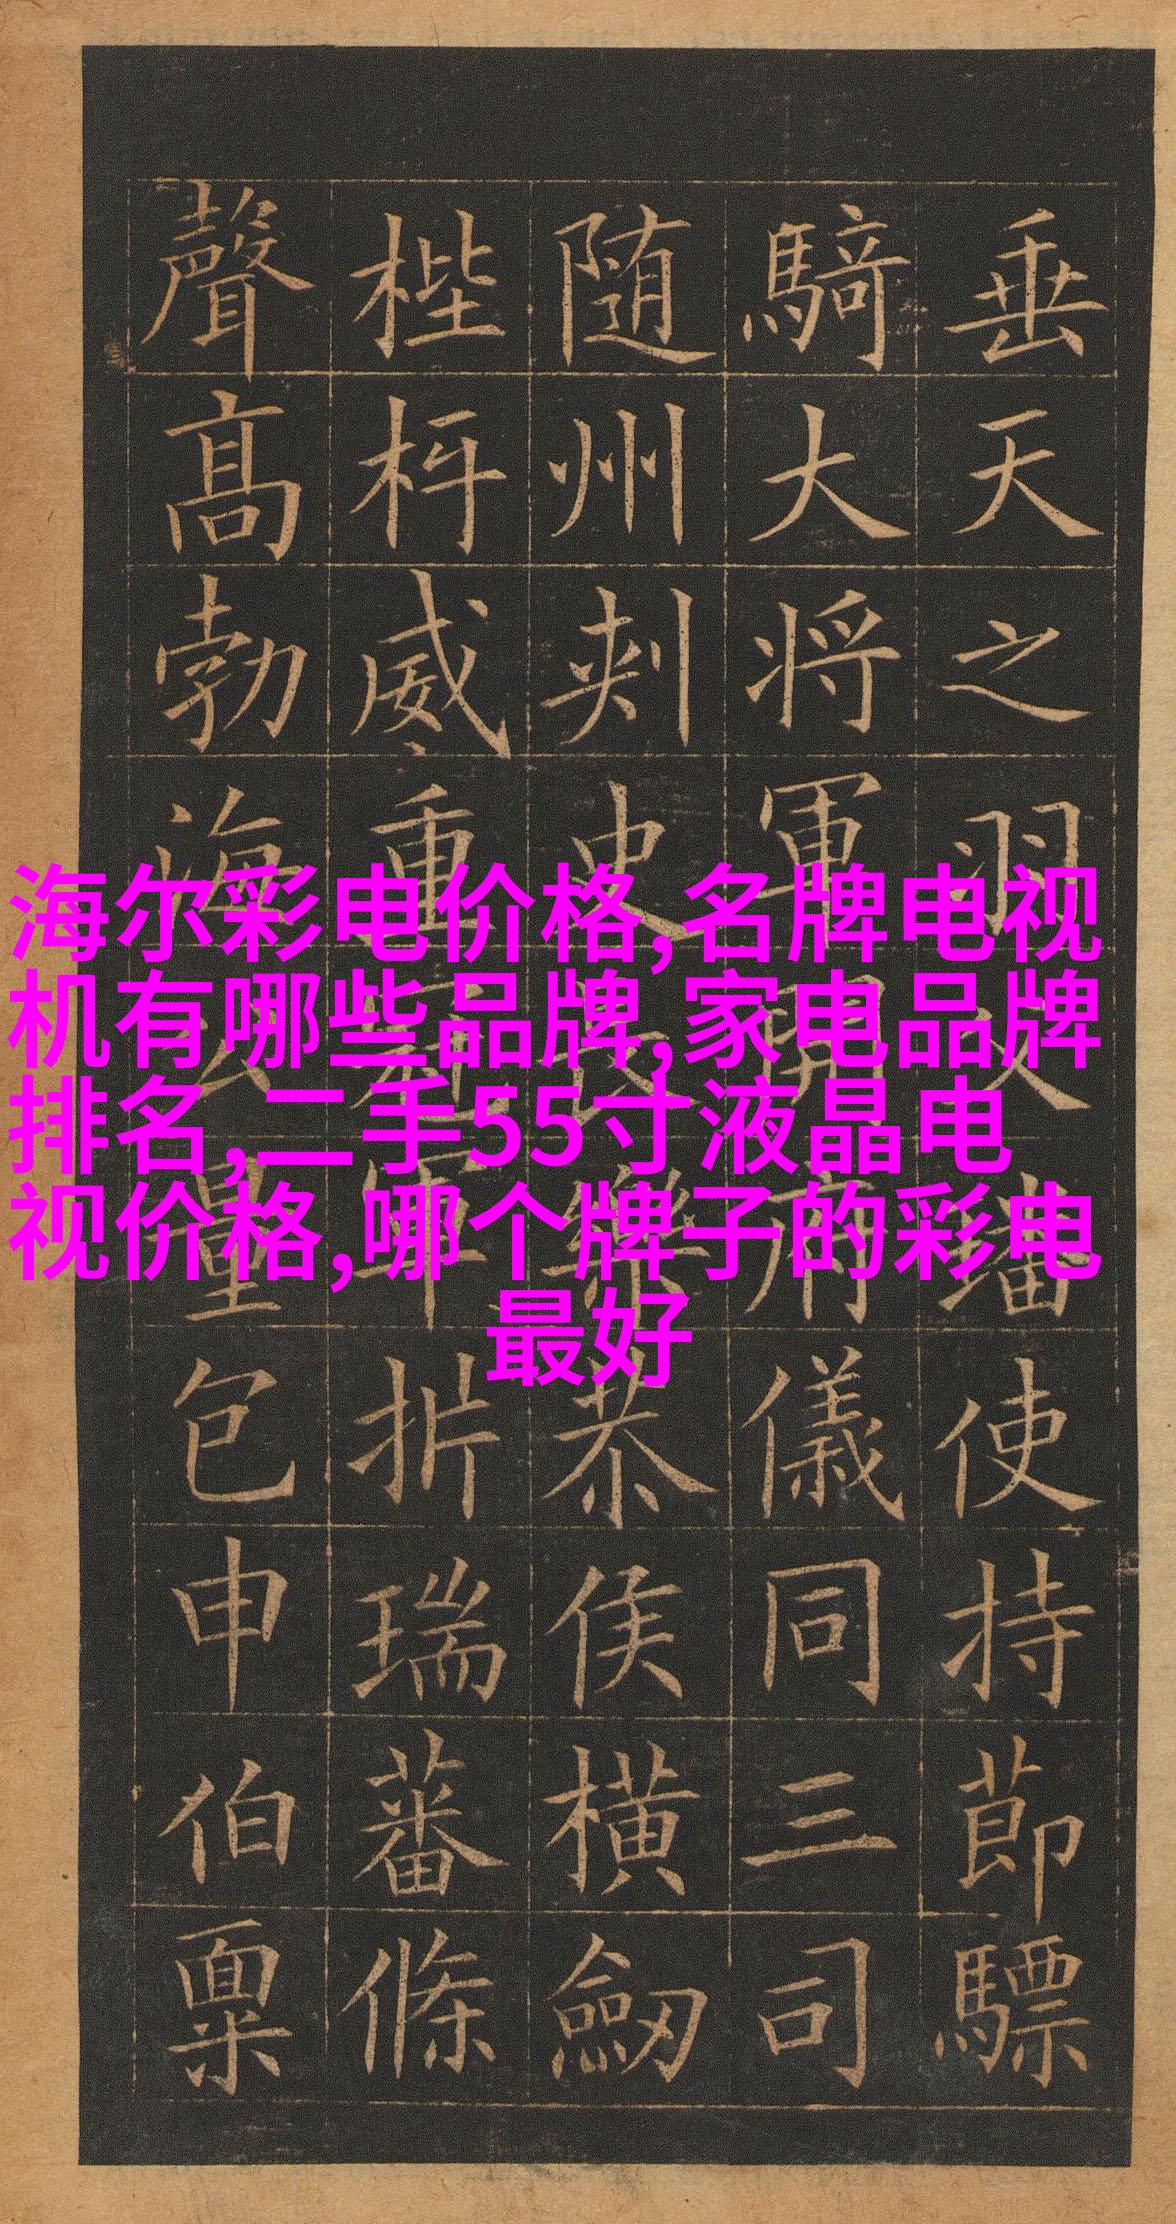 海尔彩电价格,名牌电视
机有哪些品牌,家电品牌
排名,二手55寸液晶电
视价格,哪个牌子的彩电
最好
垂天之羽父璠使持節驃
騎大将軍開府儀同三司
随州刾史長樂恭侯横劒
梐枑威重冠軍析瑞蕃條
聲高勃海公量包申伯稟